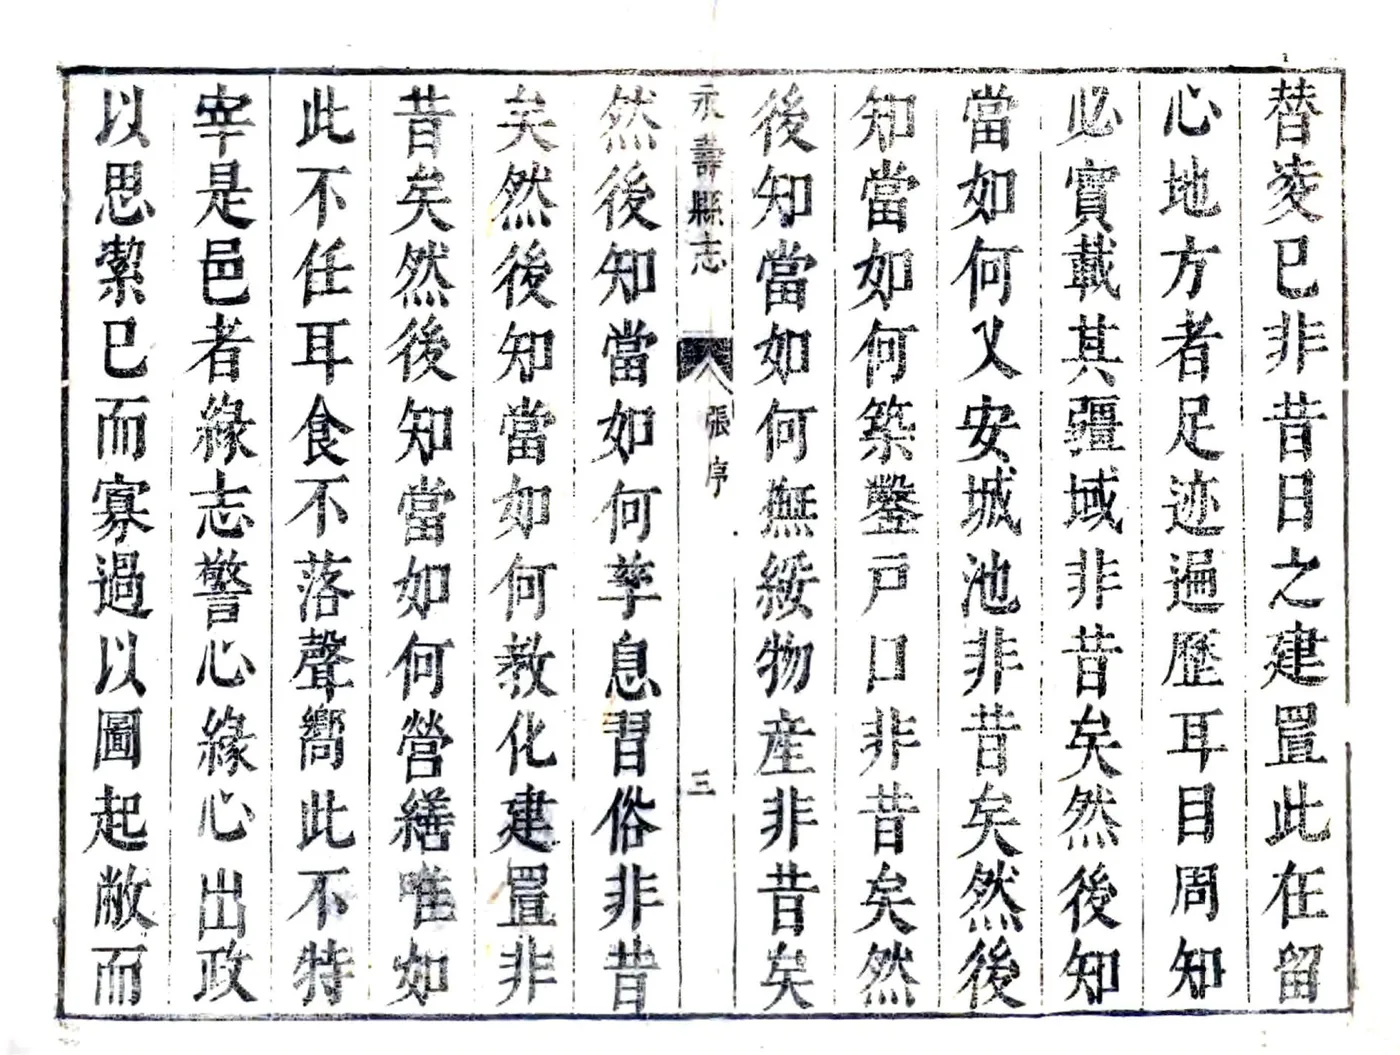 替凌已非昔日之建置此在留
心地方者足迹遍歷耳目周知
必實載其疆域非昔矣然後知
當如何乂安城池非昔矣然後
知當如何築鑿戸口非昔矣然
後知當如何撫綏物産非昔矣
永壽縣志 張序 三
然後知當如何莩息習俗非昔
矣然後知當如何教化建置非
昔矣然後知當如何營繕惟如
此不任耳食不落聲嚮此不特
宰是邑者緣志警心緣心出政
以思潔已而寡過以圖起敝而